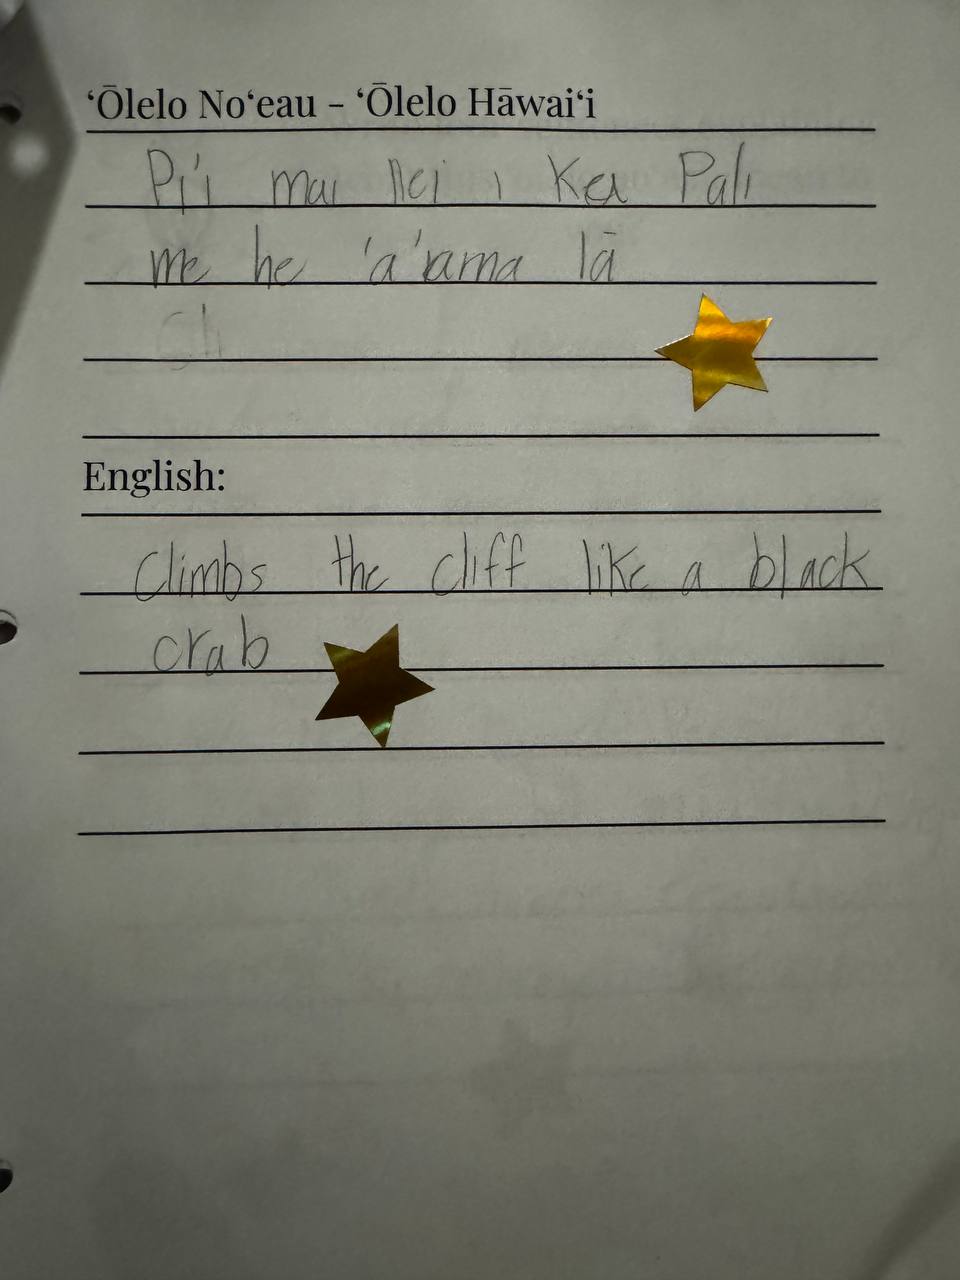 ʻŌlelo Noʻeau - ʻŌlelo Hāwaiʻi
Pi'i mai nei i Kea Pali
me he 'a'ama lā
English:
Climbs the cliff like a black
crab